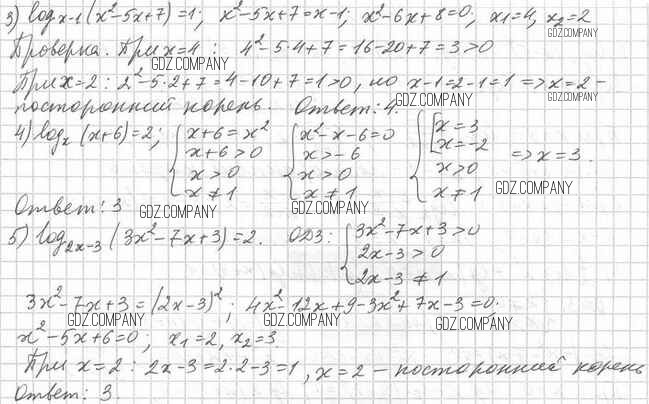 3) log_{x-1}(x²-5x+7)=1; x²-5x+7=x-1; x²-6x+8=0; x₁=4, x₂=2
GDZ.COMPANY
Проверка. При x=4: 4²-5·4+7=16-20+7=3>0
GDZ.COMPANY
При x=2: 2²-5·2+7=4-10+7=1>0, но x-1=2-1=1 => x=2 –
GDZ.COMPANY GDZ.COMPANY
посторонний корень. Ответ: 4.
4) log_x(x+6)=2; { x+6=x² { x²-x-6=0 { [ x=3
x+6>0 x>-6 x=-2
x>0 x>0 x>0 => x=3.
x≠1 x≠1 x≠1
GDZ.COMPANY
Ответ: 3
GDZ.COMPANY GDZ.COMPANY
5) log_{2x-3}(3x²-7x+3)=2. ОДЗ: { 3x²-7x+3>0
2x-3>0
2x-3≠1
3x²-7x+3=(2x-3)²; 4x²-12x+9-3x²+7x-3=0;
GDZ.COMPANY GDZ.COMPANY GDZ.COMPANY
x²-5x+6=0; x₁=2, x₂=3
При x=2: 2x-3=2·2-3=1, x=2 – посторонний корень
Ответ: 3.